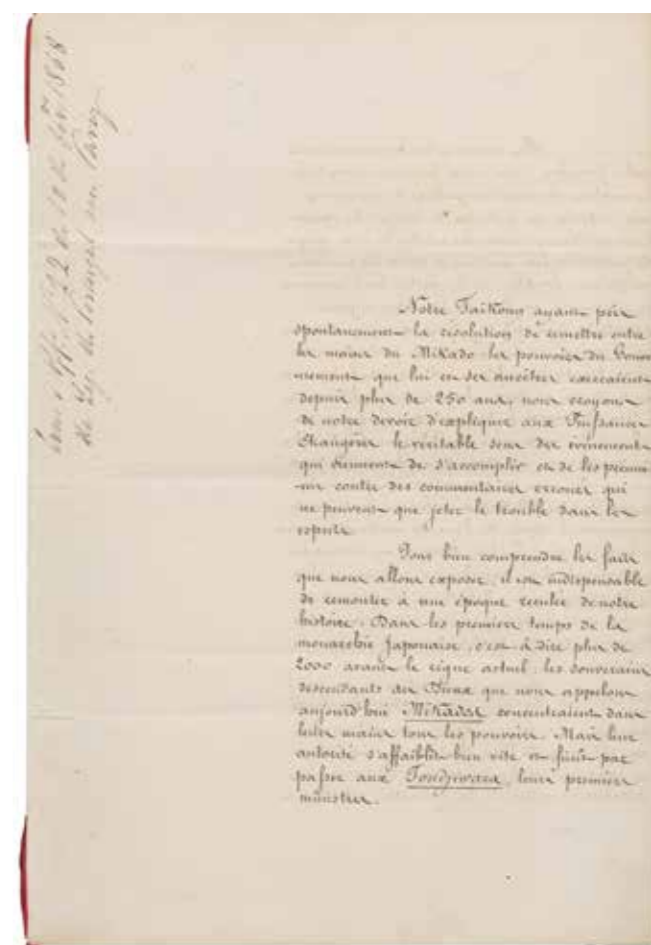 Notre Taïkoun ayant pris
spontanement la résolution de remettre entre
les mains du Mikado les pouvoirs du Gouver
nement que lui et ses ancêtres exercaient
depuis plus de 250 ans, nous croyons
de notre devoir d'expliquer aux Puissances
Etrangères le veritable sens des evénements
qui viennent de s'accomplir et de les prému
nir contre des commentaires erronés qui
ne peuvent que jeter le trouble dans les
esprits.
Pour bien comprendre les faits
que nous allons exposer, il est indispensable
de remonter à une époque reculée de notre
histoire. Dans les premiers temps de la
monarchie Japonaise, c'est à dire plus de
2000 avant le règne actuel, les souverains
descendants des Dieux que nous appelons
aujourd'hui Mikados concentraient dans
leurs mains tous les pouvoirs. Mais leur
autorité s'affaiblit bien vite et finit par
passer aux Foudjiwara, leurs premiers
ministres.
N.º 22 de 10 de 1868
de Leg. de Portugal em